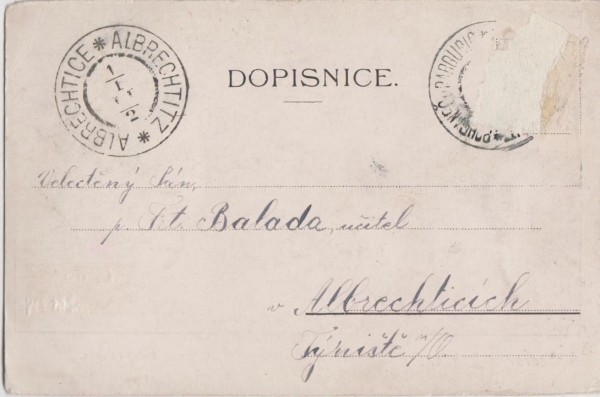 ALBRECHTICE * ALBRECHTITZ *
DOPISNICE.
Velectěný Pán,
p. Fr. Balada, učitel
v Albrechticích
Týniště n/O.